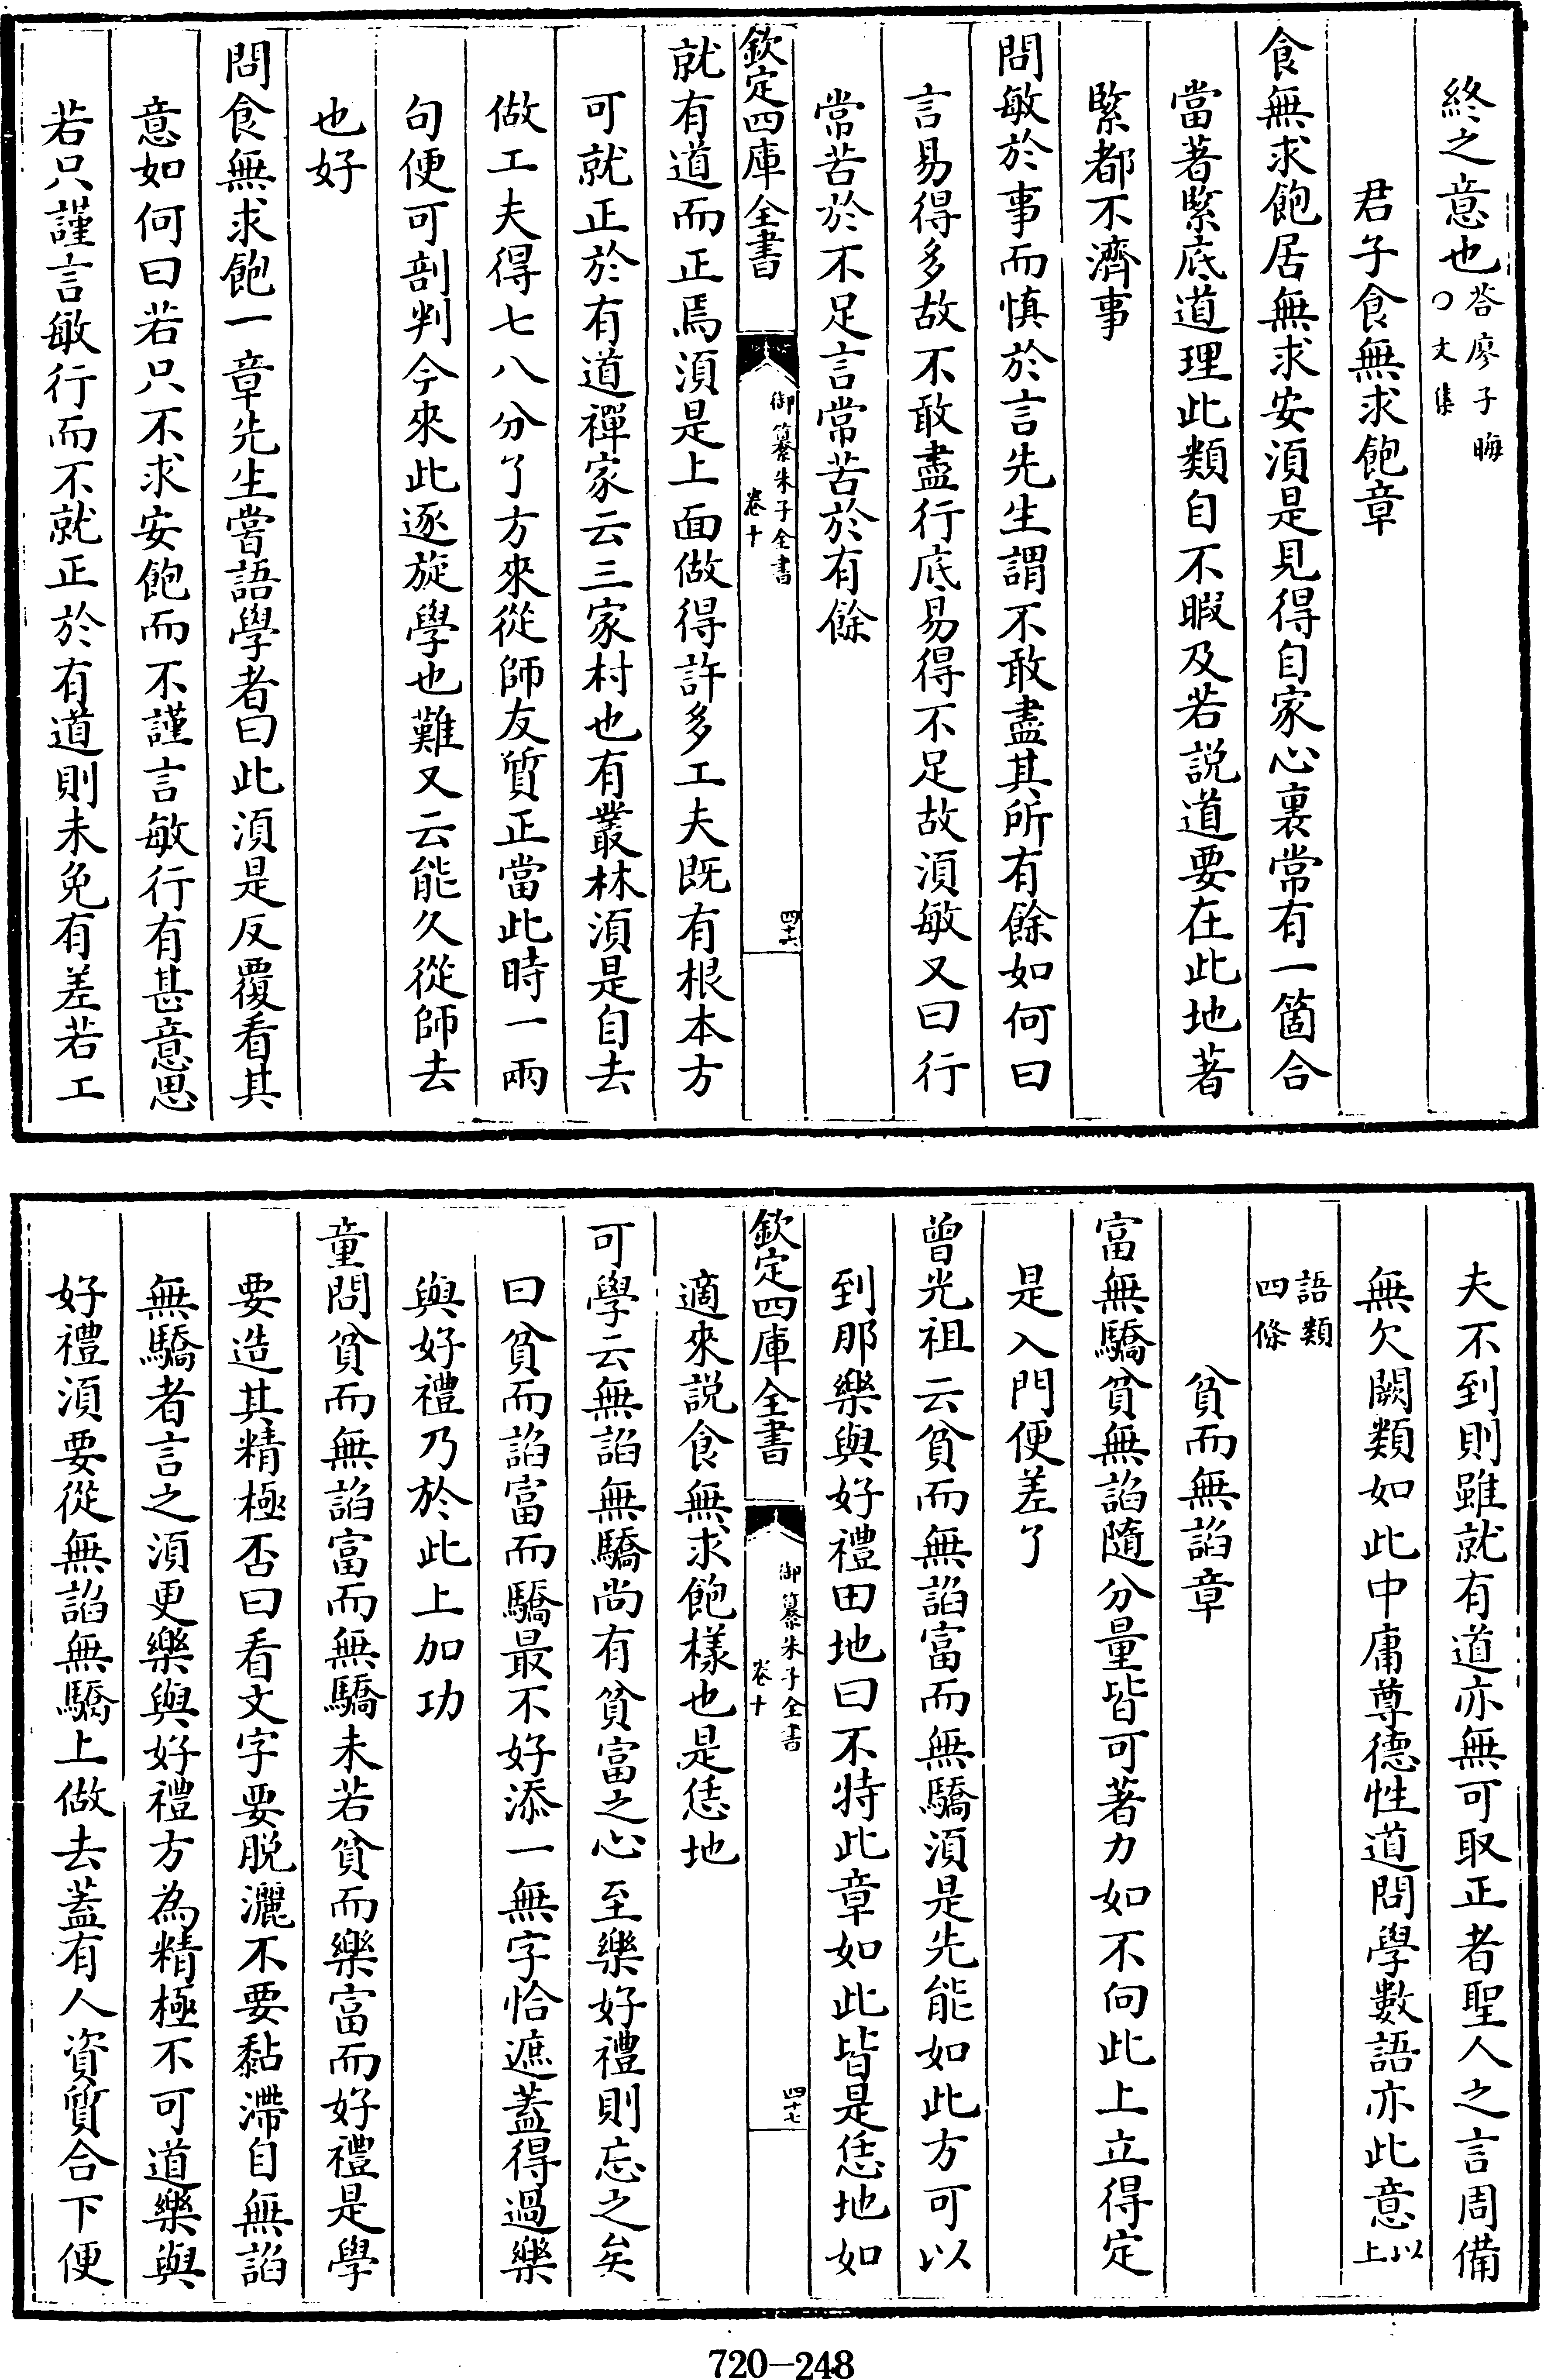 終之意也答廖子晦
〇文集
君子食無求飽章
食無求飽居無求安須是見得自家心裏常有一箇合
當著緊底道理此類自不暇及若説道要在此地著
緊都不濟事
問敏於事而慎於言先生謂不敢盡其所有餘如何曰
言易得多故不敢盡行底易得不足故須敏又曰行
常苦於不足言常苦於有餘
欽定四庫全書
御纂朱子全書
卷十
四十六
就有道而正焉須是上面做得許多工夫既有根本方
可就正於有道禪家云三家村也有叢林須是自去
做工夫得七八分了方來從師友質正當此時一兩
句便可剖判今來此逐旋學也難又云能久從師去
也好
問食無求飽一章先生嘗語學者曰此須是反覆看其
意如何曰若只不求安飽而不謹言敏行有甚意思
若只謹言敏行而不就正於有道則未免有差若工
夫不到則雖就有道亦無可取正者聖人之言周備
無欠闕類如此中庸尊德性道問學數語亦此意以
上
語類
四條
貧而無諂章
富無驕貧無諂隨分量皆可著力如不向此上立得定
是入門便差了
曾光祖云貧而無諂富而無驕須是先能如此方可以
到那樂與好禮田地曰不特此章如此皆是恁地如
欽定四庫全書
御纂朱子全書
卷十
四十七
適來説食無求飽樣也是恁地
可學云無諂無驕尚有貧富之心至樂好禮則忘之矣
曰貧而諂富而驕最不好添一無字恰遮蓋得過樂
與好禮乃於此上加功
童問貧而無諂富而無驕未若貧而樂富而好禮是學
要造其精極否曰看文字要脱灑不要黏滯自無諂
無驕者言之須更樂與好禮方為精極不可道樂與
好禮須要從無諂無驕上做去蓋有人資質合下便
720-248